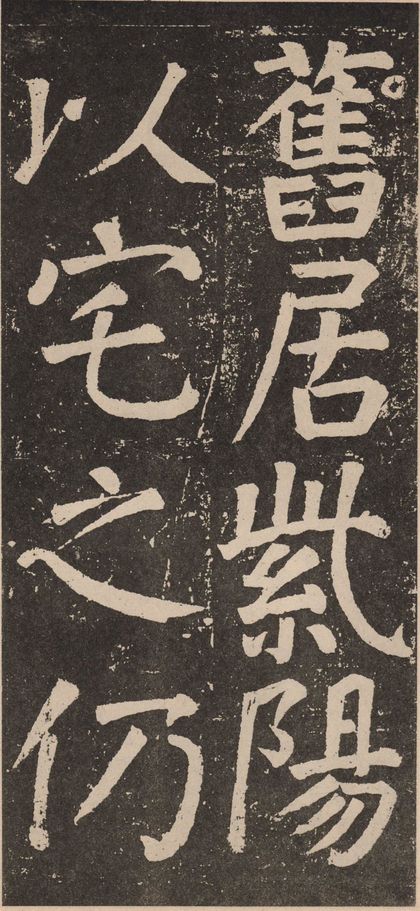 舊居紫陽
以宅之仍